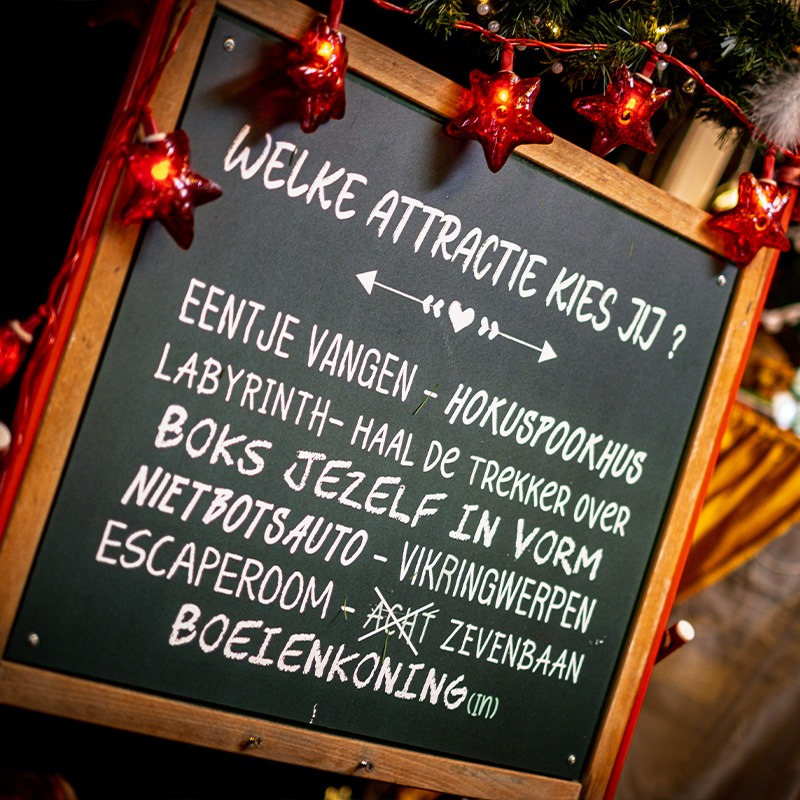 WELKE ATTRACTIE KIES JIJ ?
EENTJE VANGEN - HOKUSPOOKHUS
LABYRINTH- HAAL De TREKKER OVER
BOKS JEZELF IN VORM
NIETBOTSAUTO - VIKRINGWERPEN
ESCAPEROOM - ACHT ZEVENBAAN
BOEIENKONING(IN)